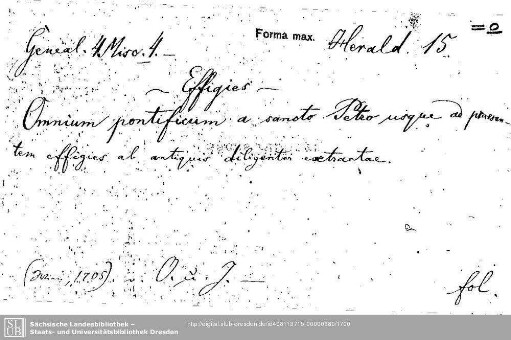 = 0
Geneal. 4. Misc. 4. — Forma max. Herald. 15
— Effigies —
Omnium pontificum a sancto Petro usque ad praesen-
tem effigies al antiquis diligenter extractae.
1705). O. u. J. —
fol.
SLUB
Sächsische Landesbibliothek –
Staats- und Universitätsbibliothek Dresden